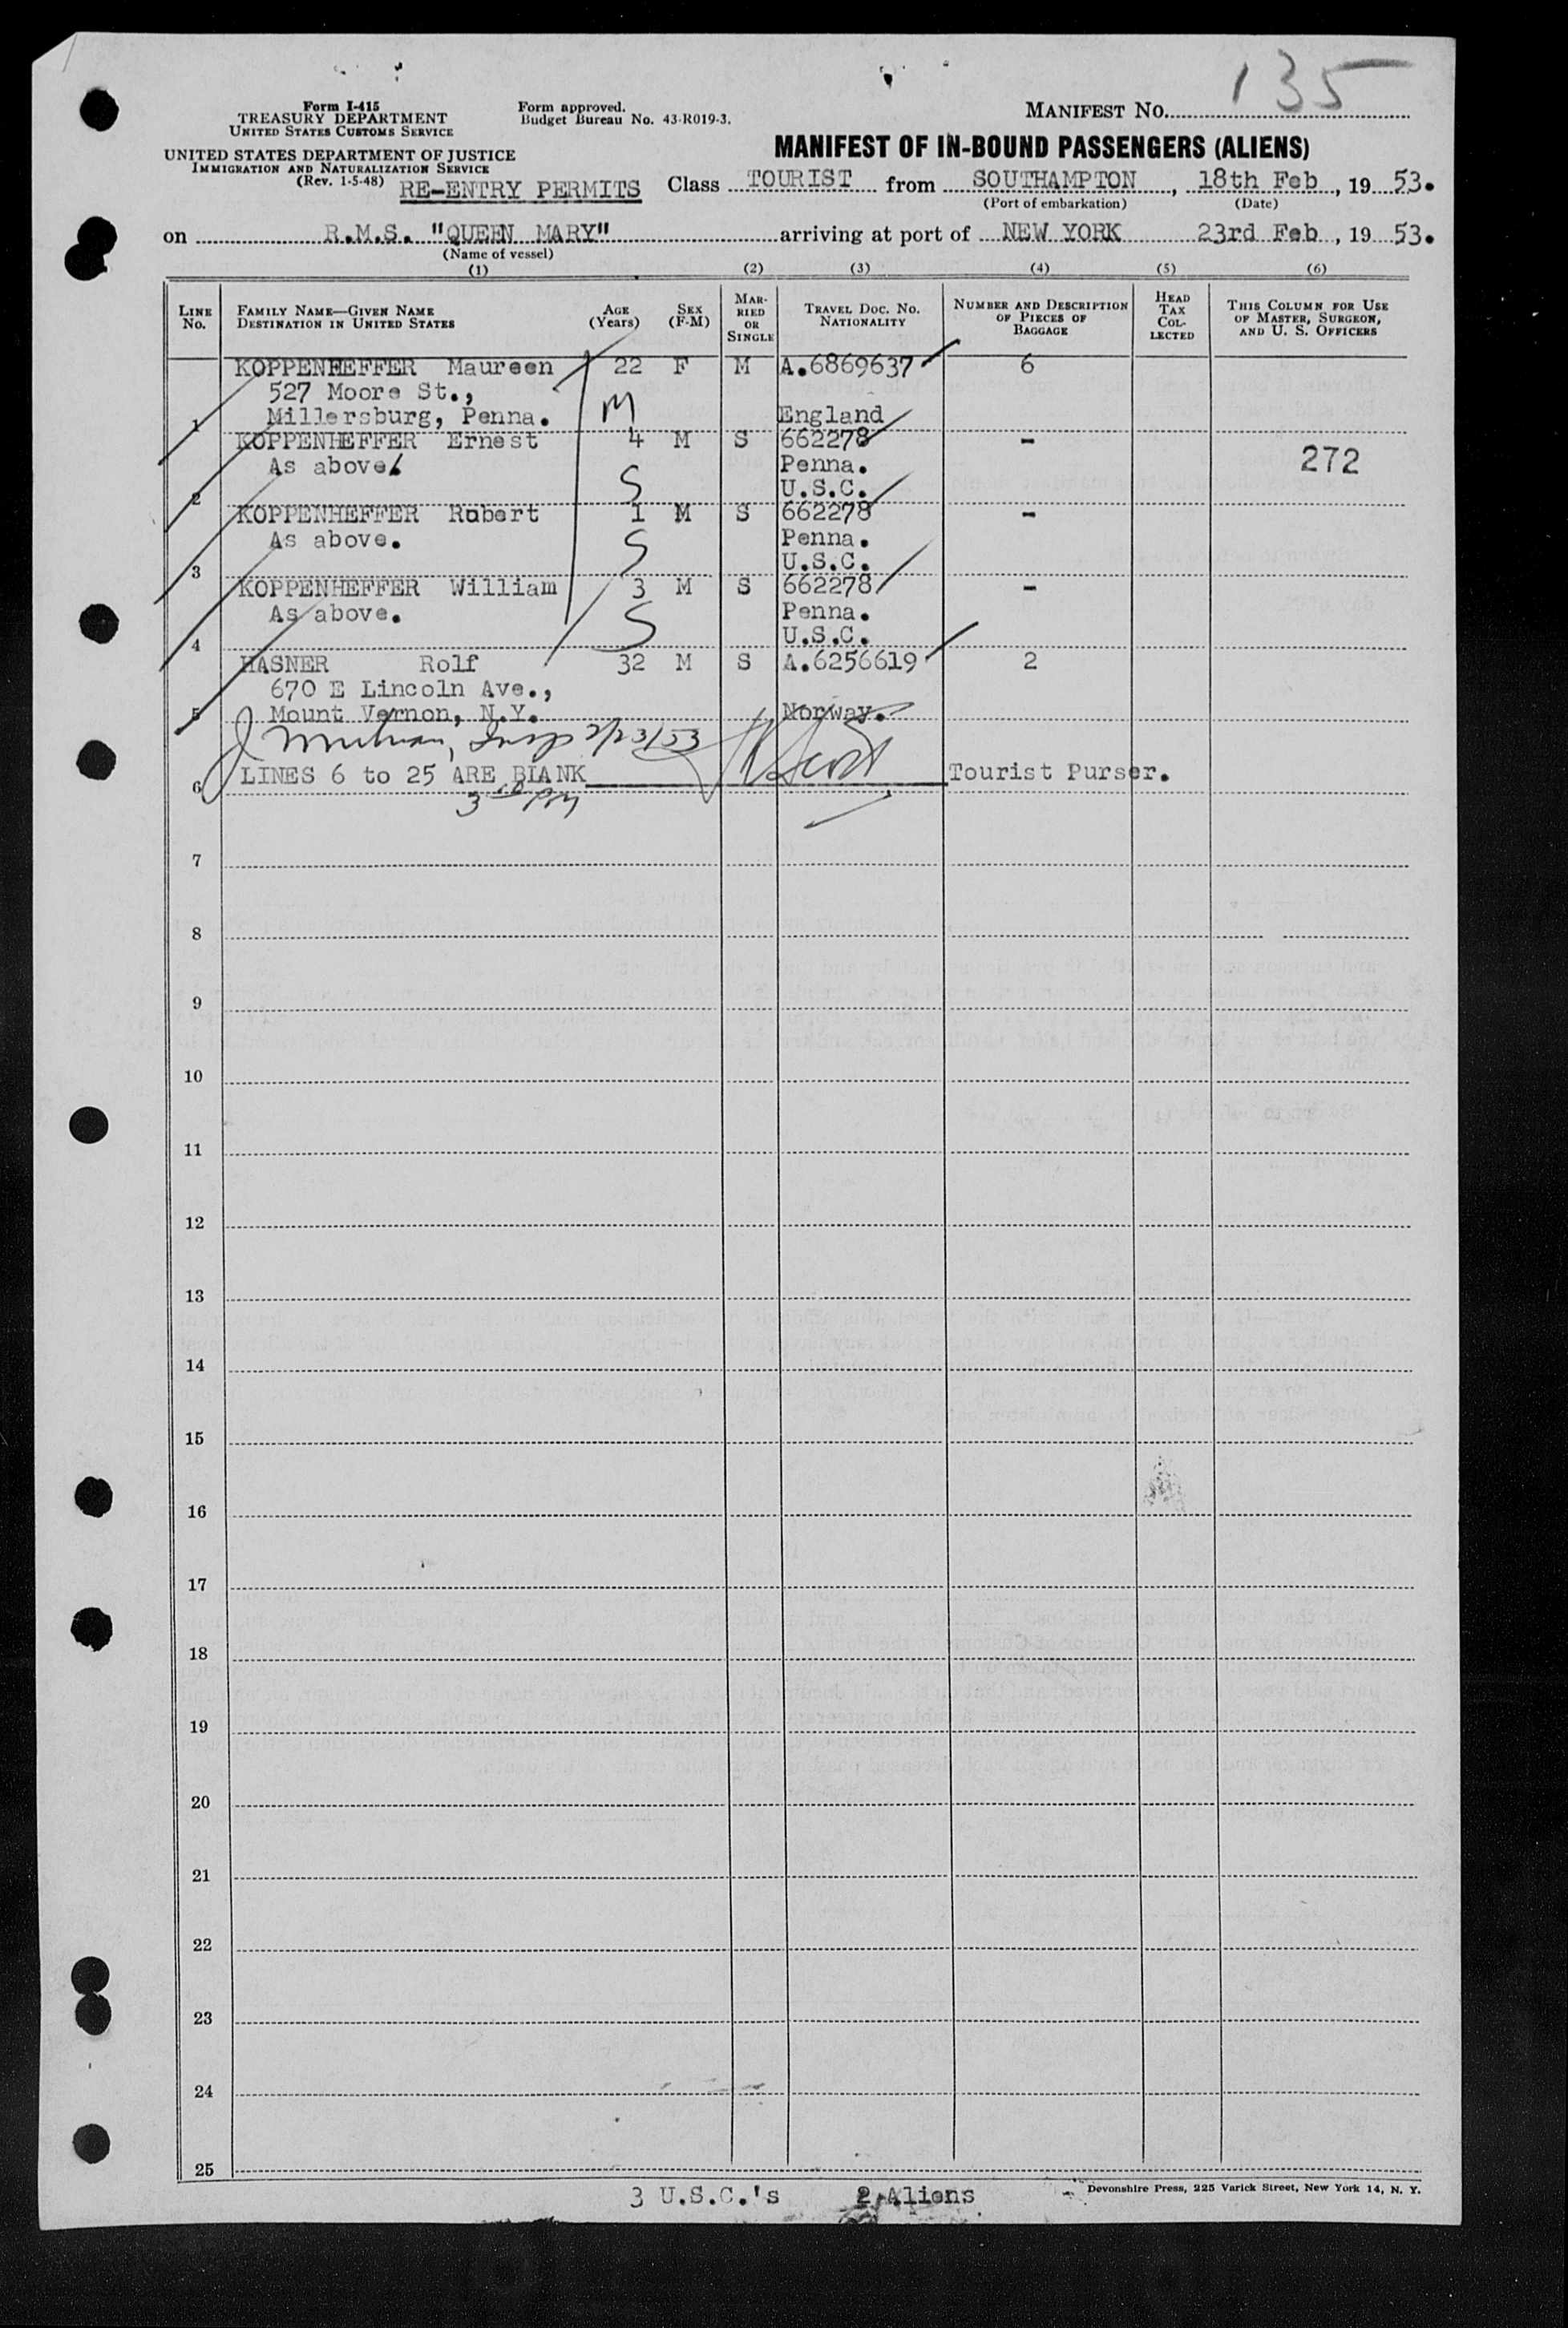 135
Form I-415
TREASURY DEPARTMENT
UNITED STATES CUSTOMS SERVICE
Form approved.
Budget Bureau No. 43-R019-3.
MANIFEST NO.
UNITED STATES DEPARTMENT OF JUSTICE
IMMIGRATION AND NATURALIZATION SERVICE
(Rev. 1-5-48)
MANIFEST OF IN-BOUND PASSENGERS (ALIENS)
RE-ENTRY PERMITS Class TOURIST from SOUTHAMPTON, 18th Feb, 19 53.
(Port of embarkation) (Date)
on R.M.S. "QUEEN MARY" arriving at port of NEW YORK 23rd Feb, 19 53.
(Name of vessel)
(1) (2) (3) (4) (5) (6)
LINE NO. FAMILY NAME—GIVEN NAME DESTINATION IN UNITED STATES AGE (YEARS) SEX (F-M) MARRIED OR SINGLE TRAVEL DOC. NO. NATIONALITY NUMBER AND DESCRIPTION OF PIECES OF BAGGAGE HEAD TAX COLLECTED THIS COLUMN FOR USE OF MASTER, SURGEON, AND U. S. OFFICERS
KOPPENHEFFER Maureen 22 F M A.6869637 6
527 Moore St., M
1 Millersburg, Penna. England
KOPPENHEFFER Ernest 4 M S 662278 -
As above. S Penna. 272
2 U.S.C.
KOPPENHEFFER Robert 1 M S 662278 -
As above. S Penna.
3 U.S.C.
KOPPENHEFFER William 3 M S 662278 -
As above. S Penna.
4 U.S.C.
HASNER Rolf 32 M S A.6256619 2
670 E Lincoln Ave.,
5 Mount Vernon, N.Y. Norway.
2/23/53
6 LINES 6 to 25 ARE BLANK Tourist Purser.
7
8
9
10
11
12
13
14
15
16
17
18
19
20
21
22
23
24
25
3 U.S.C.'s 2 Aliens
Devonshire Press, 225 Varick Street, New York 14, N. Y.